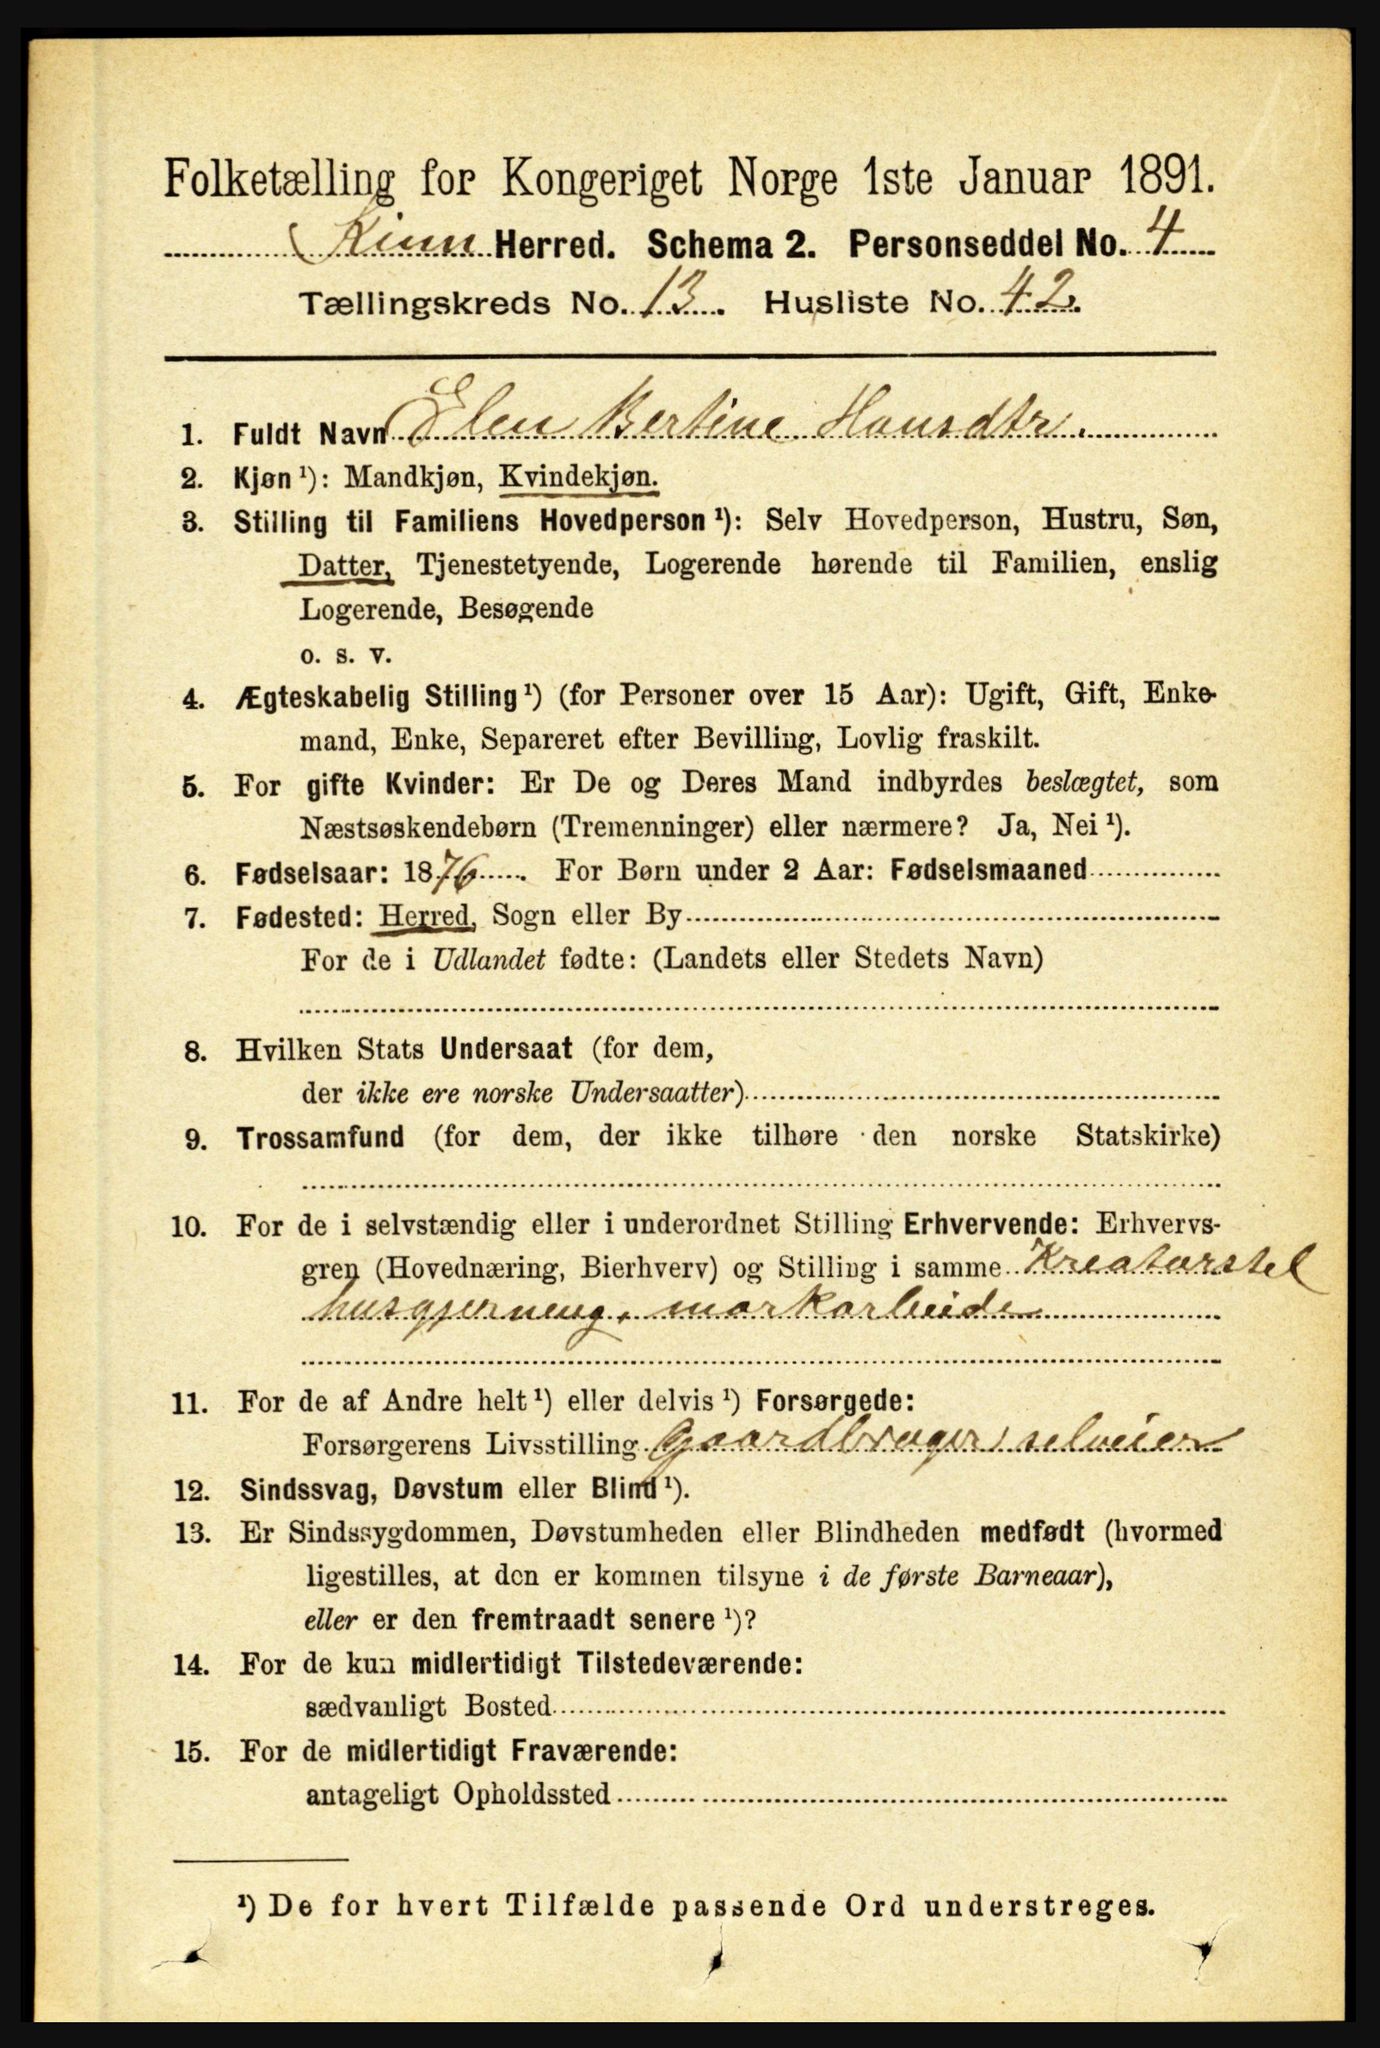 Folketælling for Kongeriget Norge 1ste Januar 1891.
Kinn Herred. Schema 2. Personseddel No. 4
Tællingskreds No. 13. Husliste No. 42.
1. Fuldt Navn Elen Bertine Hansdtr.
2. Kjøn ¹): Mandkjøn, Kvindekjøn.
3. Stilling til Familiens Hovedperson ¹): Selv Hovedperson, Hustru, Søn,
Datter, Tjenestetyende, Logerende hørende til Familien, enslig
Logerende, Besøgende
o. s. v.
4. Ægteskabelig Stilling ¹) (for Personer over 15 Aar): Ugift, Gift, Enke-
mand, Enke, Separeret efter Bevilling, Lovlig fraskilt.
5. For gifte Kvinder: Er De og Deres Mand indbyrdes beslægtet, som
Næstsøskendebørn (Tremenninger) eller nærmere? Ja, Nei ¹).
6. Fødselsaar: 1876. For Børn under 2 Aar: Fødselsmaaned
7. Fødested: Herred, Sogn eller By
For de i Udlandet fødte: (Landets eller Stedets Navn)
8. Hvilken Stats Undersaat (for dem,
der ikke ere norske Undersaatter)
9. Trossamfund (for dem, der ikke tilhøre den norske Statskirke)
10. For de i selvstændig eller i underordnet Stilling Erhvervende: Erhvervs-
gren (Hovednæring, Bierhverv) og Stilling i samme Kreaturstel
husgjerning, markarbeide
11. For de af Andre helt ¹) eller delvis ¹) Forsørgede:
Forsørgerens Livsstilling Gaardbruger, selveier
12. Sindssvag, Døvstum eller Blind ¹).
13. Er Sindssygdommen, Døvstumheden eller Blindheden medfødt (hvormed
ligestilles, at den er kommen tilsyne i de første Barneaar),
eller er den fremtraadt senere ¹)?
14. For de kun midlertidigt Tilstedeværende:
sædvanligt Bosted
15. For de midlertidigt Fraværende:
antageligt Opholdssted
¹) De for hvert Tilfælde passende Ord understreges.